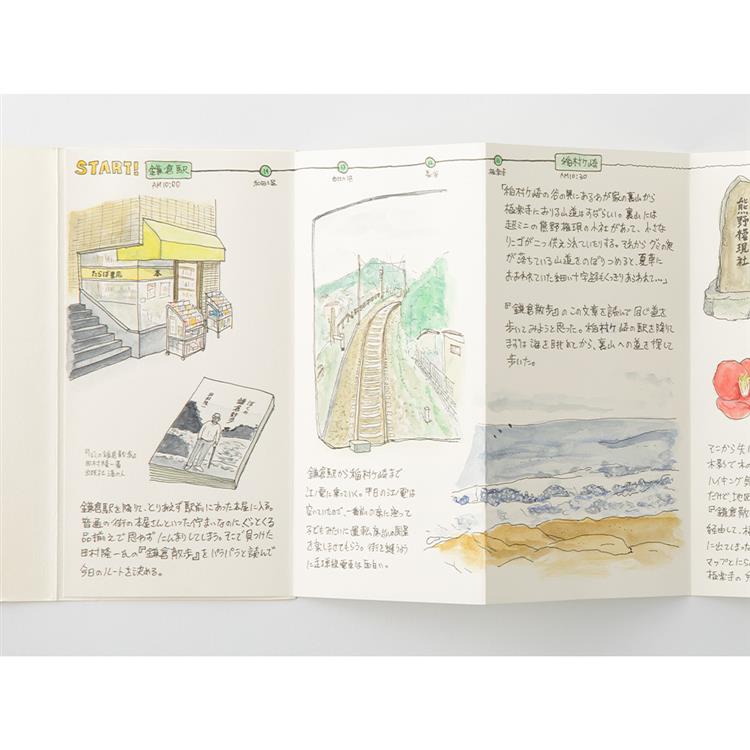 START! 鎌倉駅
AM10:00
14
和田塚
13
由比ヶ浜
12
長谷
11
極楽寺
稲村ケ崎
AM10:30
たらば書房 本
ぼくの
鎌倉散歩
田村隆一
『ぼくの鎌倉散歩』
田村隆一著
出版社 港の人
鎌倉駅を降りて、とりあえず駅前にあった本屋に入る。
普通の街の本屋さんといった佇まいなのにぐっとくる
品揃えで思わずにんまりしてしまう。そこで見つけた
田村隆一氏の『鎌倉散歩』をパラパラと読んで
今日のルートを決める。
鎌倉駅から稲村ケ崎まで
江ノ電に乗っていく。平日の江ノ電は
空いていたので、一番前の席に座って
子どもみたいに運転席からの風景
を楽しませてもらう。街を縫うように
走る単線電車は面白い。
「稲村ケ崎の谷の奥にあるわが家の裏山から
極楽寺におりる山道はすばらしい。裏山には
超ミニの熊野権現の小社があって、小さな
リンゴが二つ供えられていたりする。それからグミの実
が落ちている山道をのぼりつめると、夏草に
おおわれていた細い十字路もくっきりあらわれて…」
『鎌倉散歩』のこの文章を読んで同じ道を
歩いてみようと思った。稲村ケ崎の駅を降りて
まずは海を眺めてから、裏山への道を探して
歩いた。
熊野権現社
そこから
木影で
ハイキング
だけど、地図
『鎌倉散
経由して、
に出てまった
マップとにら
極楽寺の